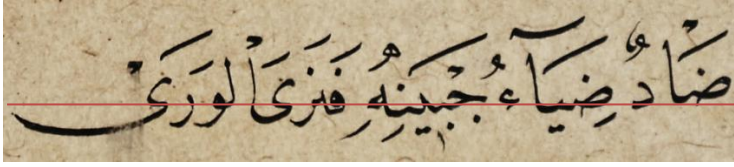 ضَادٌ ضِيَآءُ جَبِينِهِ فَتَرَى الْوَرَى